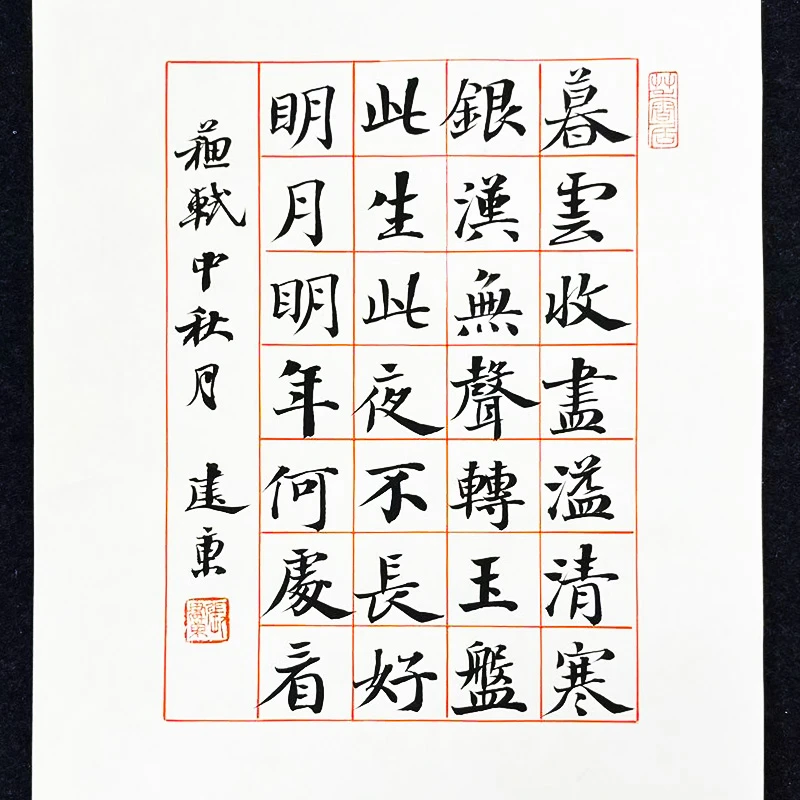 暮雲收盡溢清寒
銀漢無聲轉玉盤
此生此夜不長好
明月明年何處看
蘇軾中秋月 建東